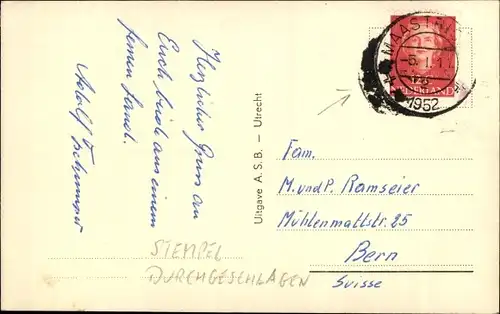 Herzlicher Gruss an
Euch beide aus einem
fernen Land.
Adolf
STEMPEL
DURCHGESCHLAGEN
Uitgave A. S. B. – Utrecht
MAASTRI
-5.1.17
1952
NEDERLAND
Fam.
M. und P. Ramseier
Mühlenmattstr. 25
Bern
Suisse